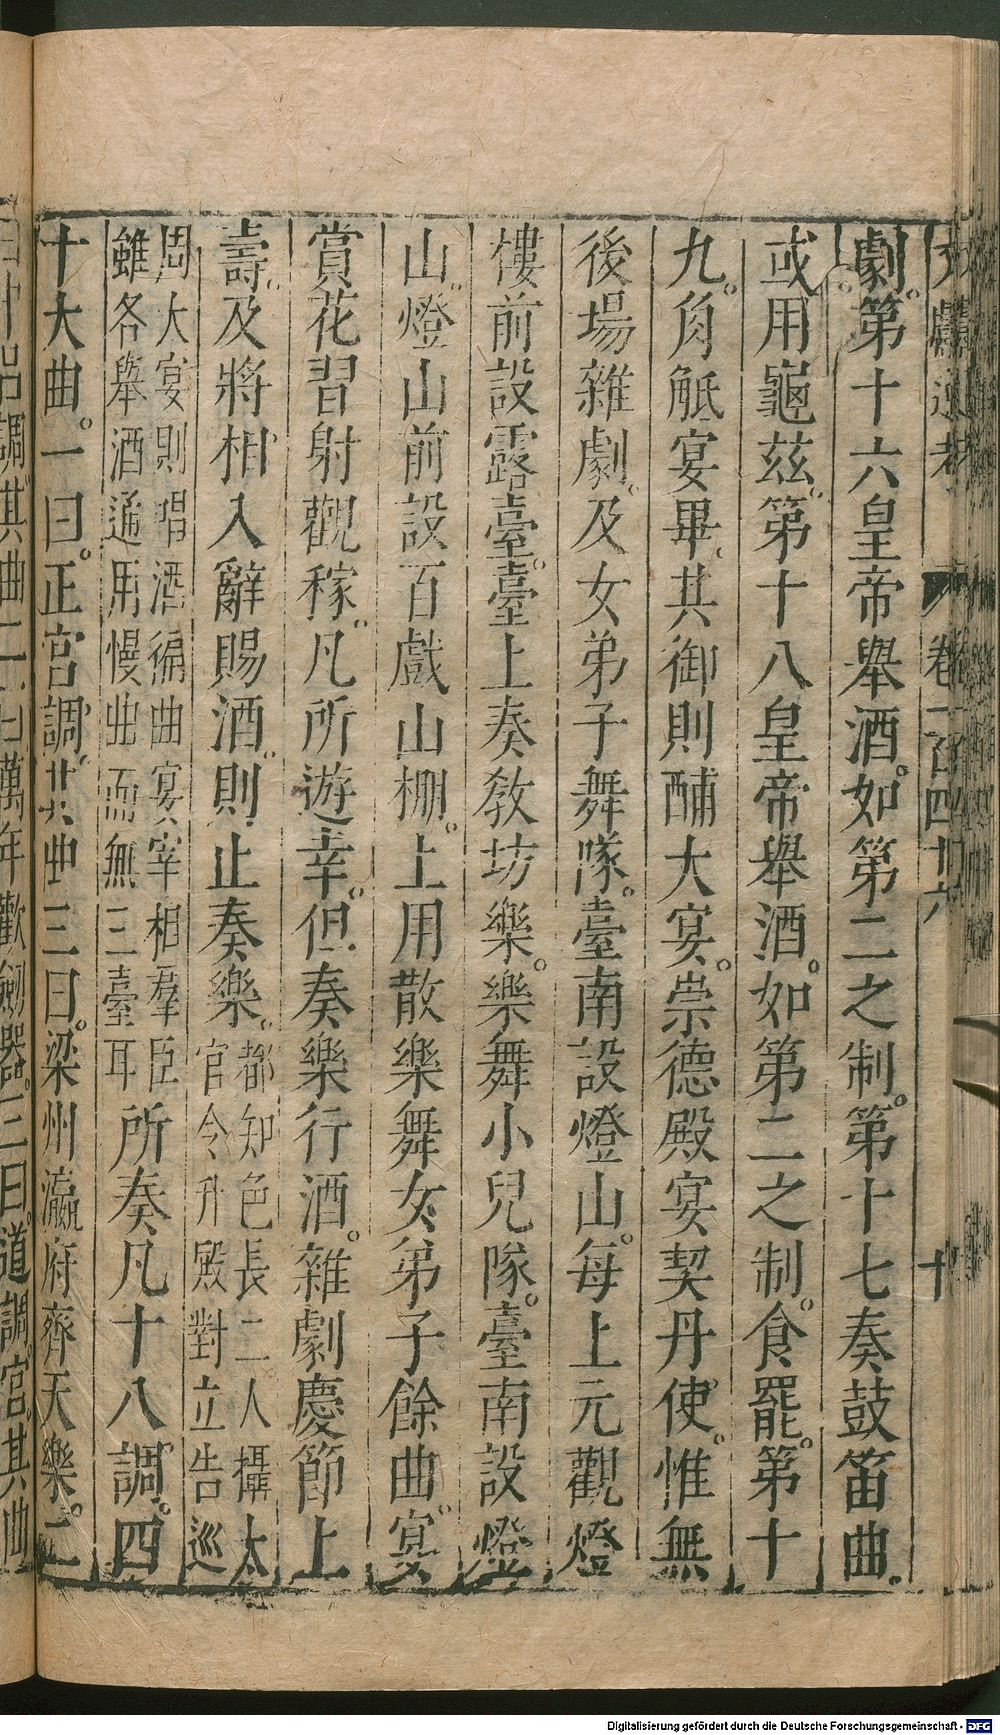 文獻通考 卷一百四十六 十
劇。第十六皇帝舉酒。如第二之制。第十七奏鼓笛曲。
或用龜茲。第十八皇帝舉酒。如第二之制。食罷。第十
九。角觝宴畢。其御則酺大宴。崇德殿宴契丹使。惟無
後場雜劇。及女弟子舞隊。臺南設燈山。每上元觀燈
樓前設露臺。臺上奏敎坊樂。樂舞小兒隊。臺南設燈
山。燈山前設百戲山棚。上用散樂舞女弟子餘曲。宴
賞花習射觀稼。凡所遊幸。但奏樂行酒。雜劇慶節上
壽。及將相入辭賜酒。則止奏樂。都知色長二人攝太
官令升殿對立告巡
周大宴則唱酒徧曲宴宰相羣臣
雖各舉酒通用慢曲而無三臺耳所奏凡十八調。四
十大曲。一曰。正宮調。其曲三曰。梁州瀛府齊天樂。二
曰中呂調。其曲二曰萬年歡劍器。三曰。道調宮。其曲
Digitalisierung gefördert durch die Deutsche Forschungsgemeinschaft - DFG